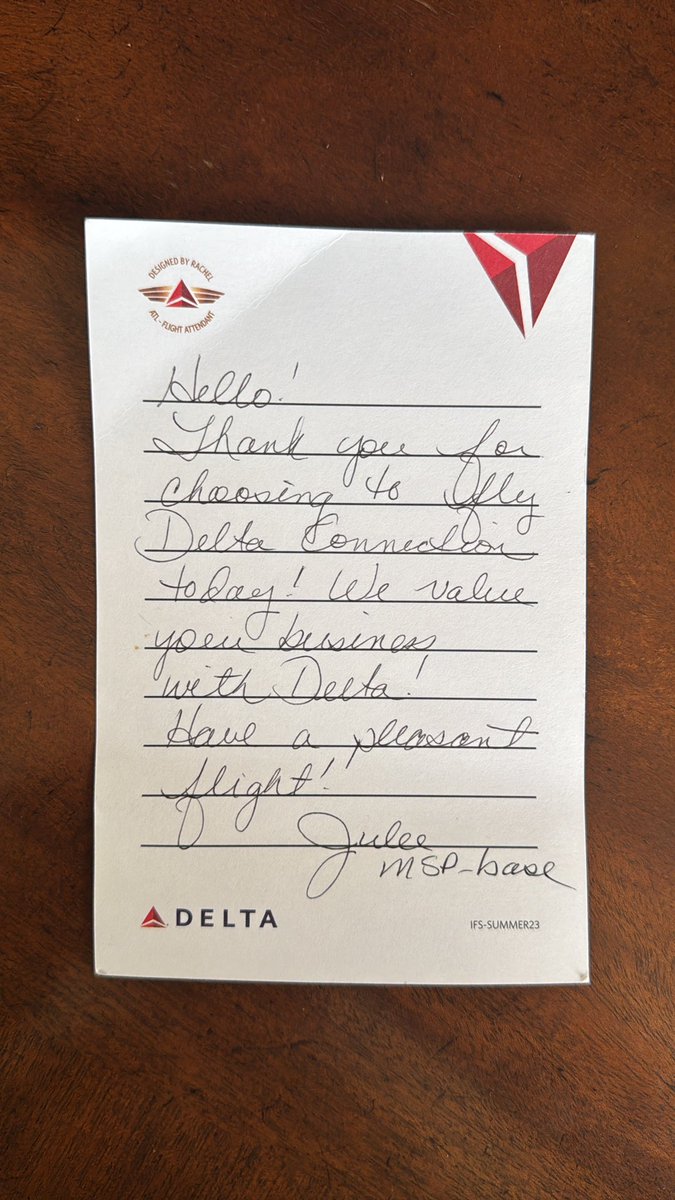 DESIGNED BY RACHEL
ATL - FLIGHT ATTENDANT
Hello!
Thank you for
choosing to fly
Delta Connection
today! We value
your business
with Delta!
Have a pleasant
flight!
Julee
MSP-base
DELTA
IFS-SUMMER23